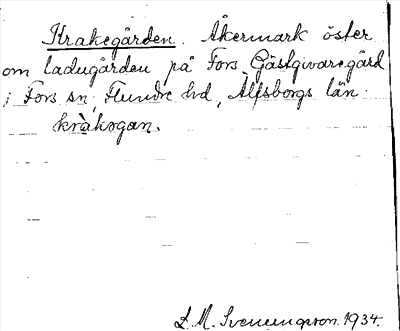 Krakegården. Åkermark öster
om ladugården på Fors Gästgivaregård
i Fors sn, Flundre hd, Älfsborgs län.
kràkogan.
L. M. Svenungsson. 1934.